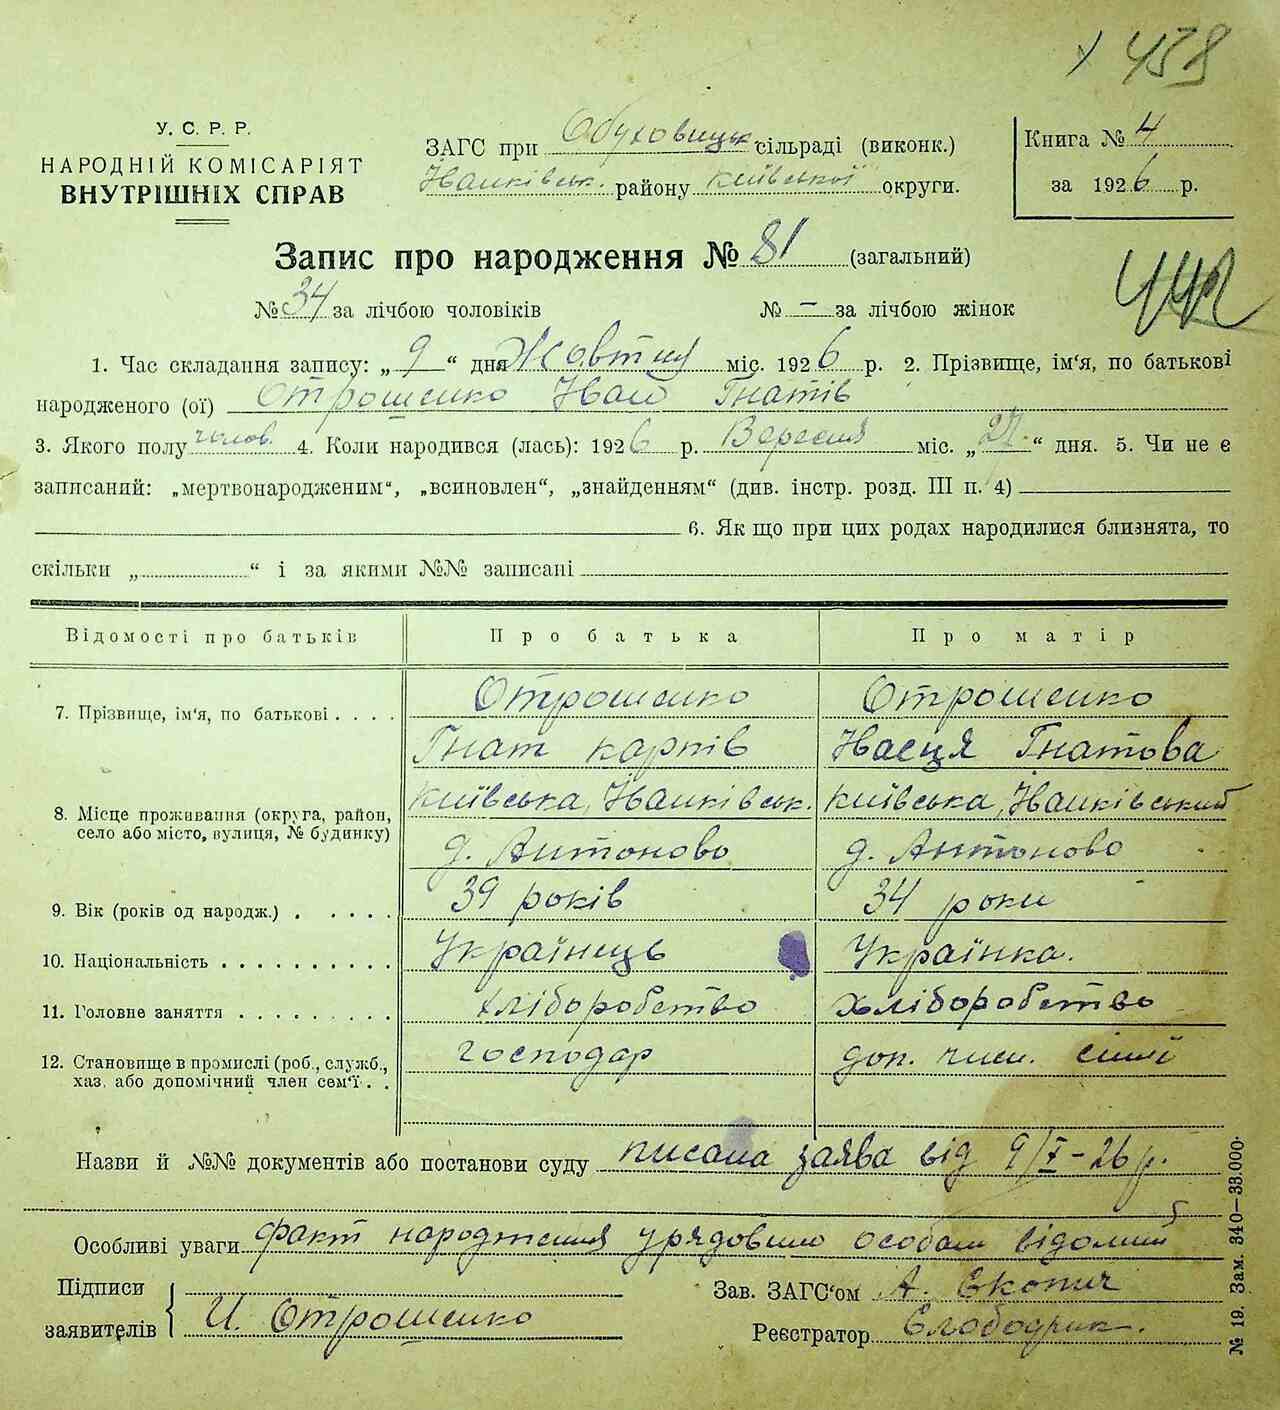 438
У. С. Р. Р.
НАРОДНІЙ КОМІСАРІЯТ
ВНУТРІШНІХ СПРАВ
ЗАГС при Обуховицьк сільраді (виконк.)
Іванківськ. району Київської округи.
Книга № 4
за 1926 р.
Запис про народження № 81 (загальний)
442
№ 34 за лічбою чоловіків № — за лічбою жінок
1. Час складання запису: „ 9 “ дня Жовтня міс. 1926 р. 2. Прізвище, ім‘я, по батькові
народженого (ої) Отрошенко Іван Гнатів
3. Якого полу чолов. 4. Коли народився (лась): 1926 р. Вересня міс. „ 27. “ дня. 5. Чи не є
записаний: „мертвонародженим“, „всиновлен“, „знайденням“ (див. інстр. розд. III п. 4)
6. Як що при цих родах народилися близнята, то
скільки „ “ і за якими №№ записані
Відомості про батьків Про батька Про матір
7. Прізвище, ім‘я, по батькові . . . . Отрошенко Отрошенко
Гнат Карпів Насця Гнатова
8. Місце проживання (округа, район, село або місто, вулиця, № будинку) Київська, Іванківськ. Київська, Іванківський
д. Антоново д. Антоново
9. Вік (років од народж.) . . . . . 39 років 34 роки
10. Національність . . . . . . . . . . Українець Українка.
11. Головне заняття . . . . . . . . . хліборобство хліборобство
12. Становище в промислі (роб., служб., хаз. або допомічний член сем‘ї . . господар доп. член. сімї
Назви й №№ документів або постанови суду писана заява від 9/X-26 р.
Особливі уваги факт народження урядовим особам відомий
Підписи
заявителів И. Отрошенко
Зав. ЗАГС‘ом А.
Реєстратор
№ 19. Зам. 340—33.000.